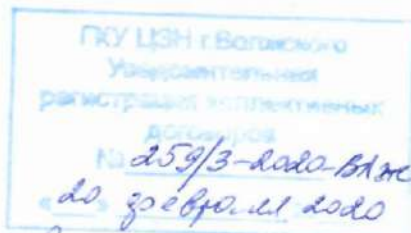 ГКУ ЦЗН г.Волжского
Уведомительная
регистрация коллективных
договоров
№ 259/3-2020-ВЛж
20 февраля 2020